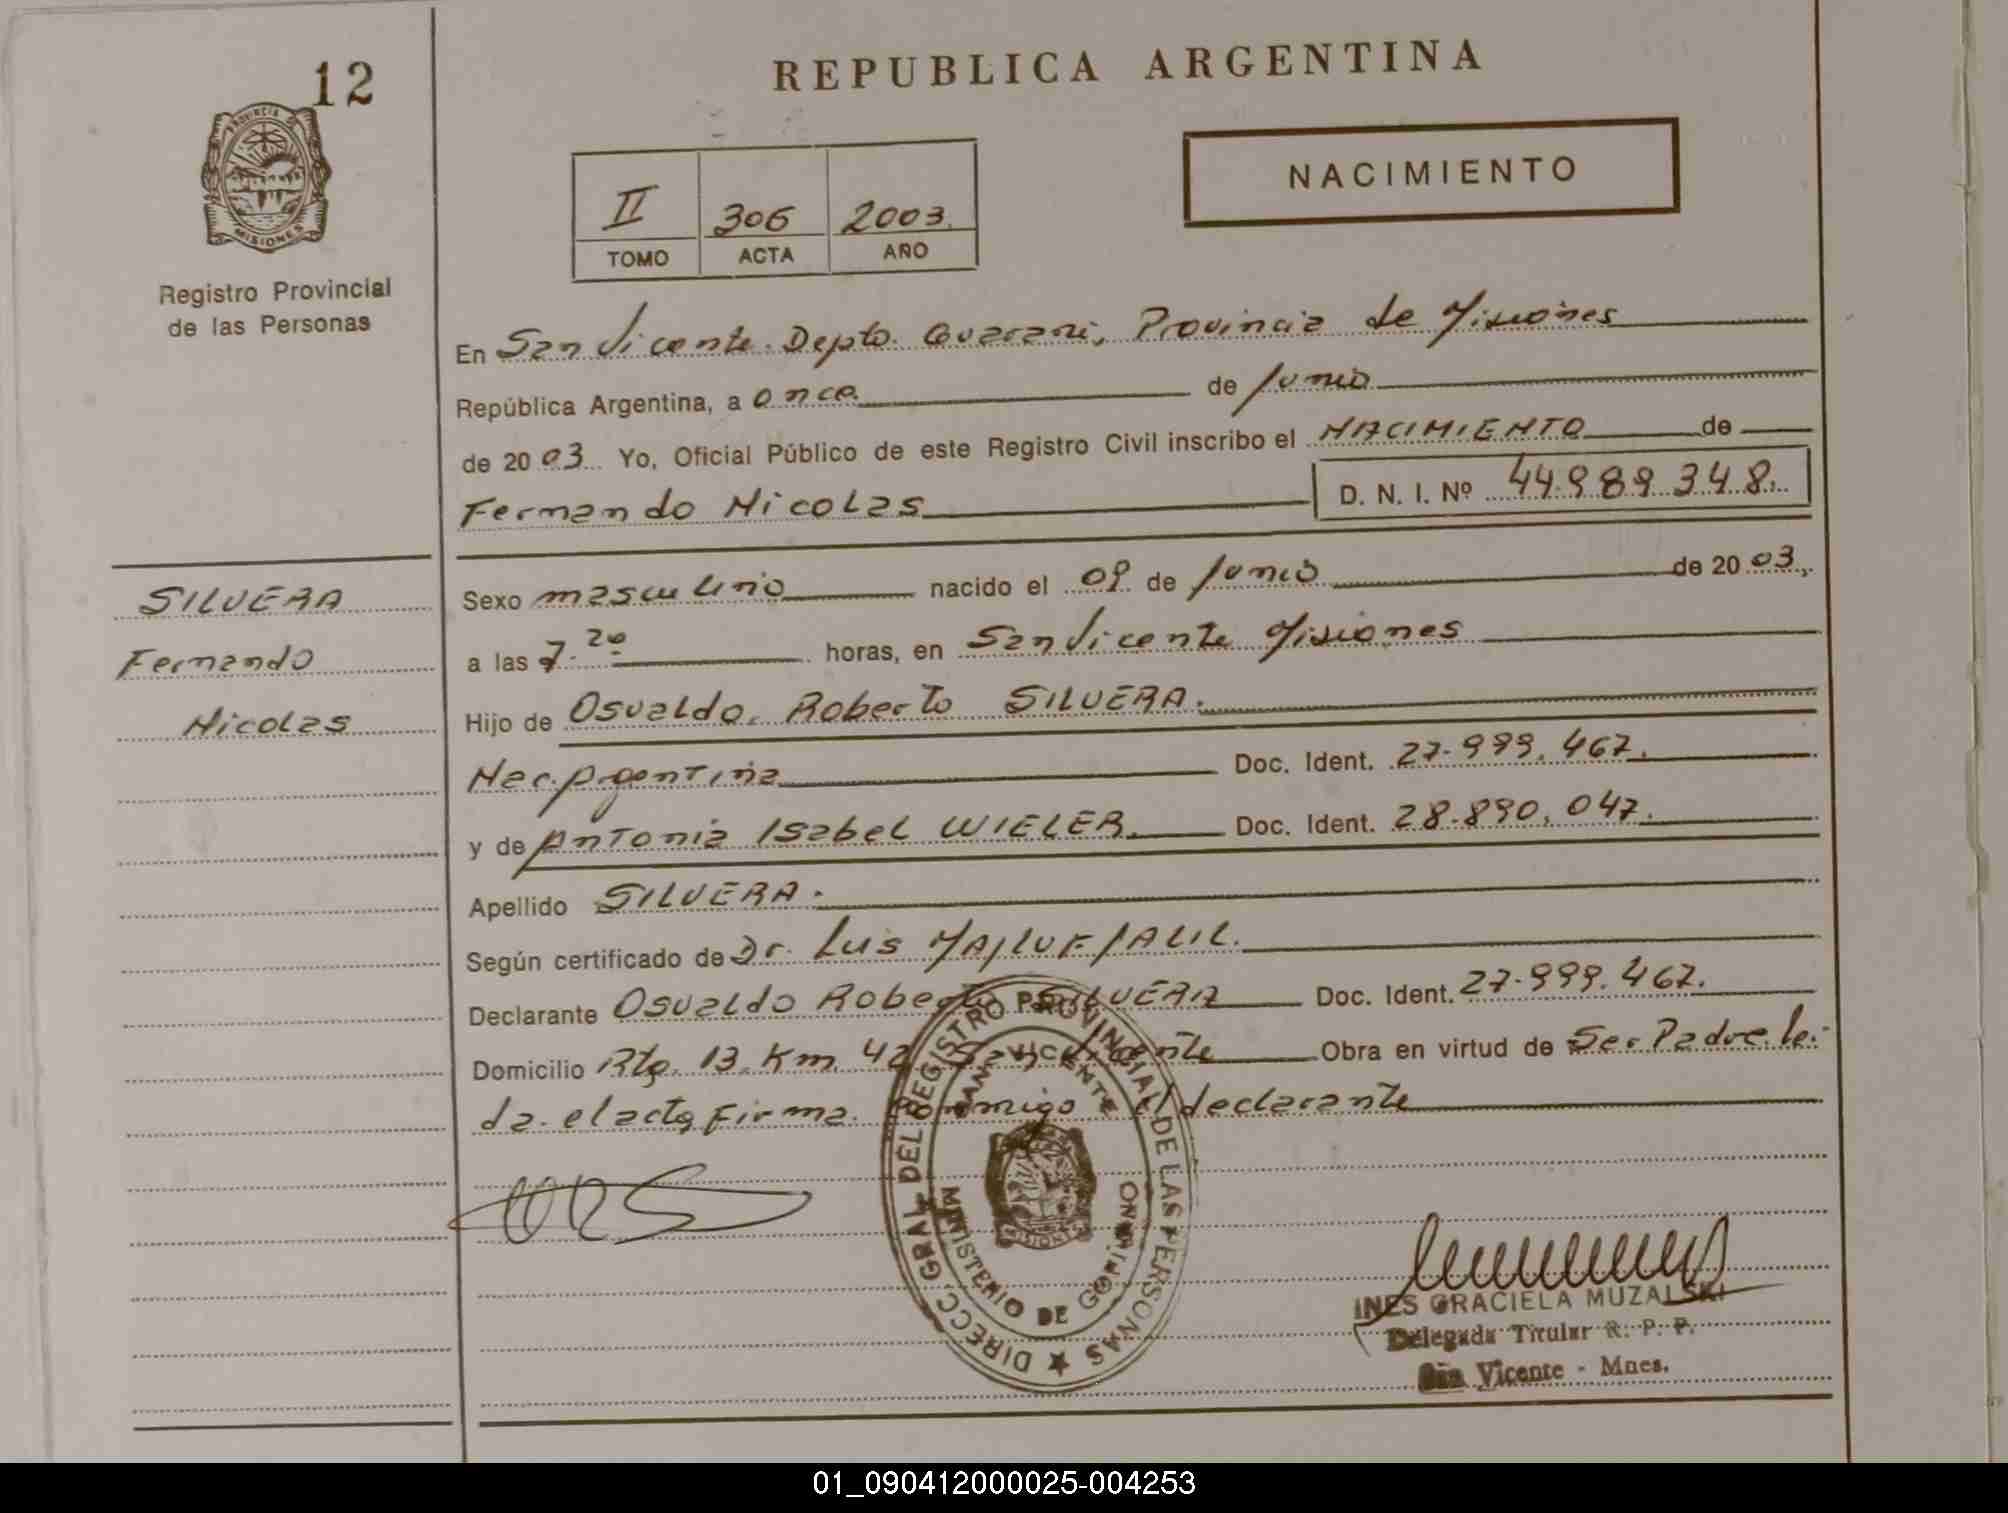 12
PROVINCIA DE
MISIONES
Registro Provincial
de las Personas
REPUBLICA ARGENTINA
NACIMIENTO
II 306 2003.
TOMO ACTA AÑO
En San Vicente. Depto. Guarani, Provincia de Misiones
República Argentina, a once de Junio
de 2003 Yo, Oficial Público de este Registro Civil inscribo el NACIMIENTO de
Fernando Nicolas D. N. I. Nº 44.989.348.
SILVERA
Fernando
Nicolas
Sexo masculino nacido el 09 de Junio de 2003.
a las 7.20 horas, en San Vicente Misiones
Hijo de Osvaldo Roberto SILVERA.
Nac. Argentina Doc. Ident. 27.999.467.
y de Antonia Isabel WIELER. Doc. Ident. 28.890.047.
Apellido SILVERA.
Según certificado de Dr. Luis MAJLUF JALIL.
Declarante Osvaldo Roberto SILVERA Doc. Ident. 27.999.467.
Domicilio Rta. 13. Km. 42 San Vicente Obra en virtud de Ser Padre. lei-
da el acta, firma conmigo el declarante
DIRECC. GRAL. DEL REGISTRO PROVINCIAL DE LAS PERSONAS
SAN VICENTE
MINISTERIO DE GOBIERNO
MISIONES
INES GRACIELA MUZALSKI
Delegada Titular R. P. P.
San Vicente - Mnes.
01_090412000025-004253